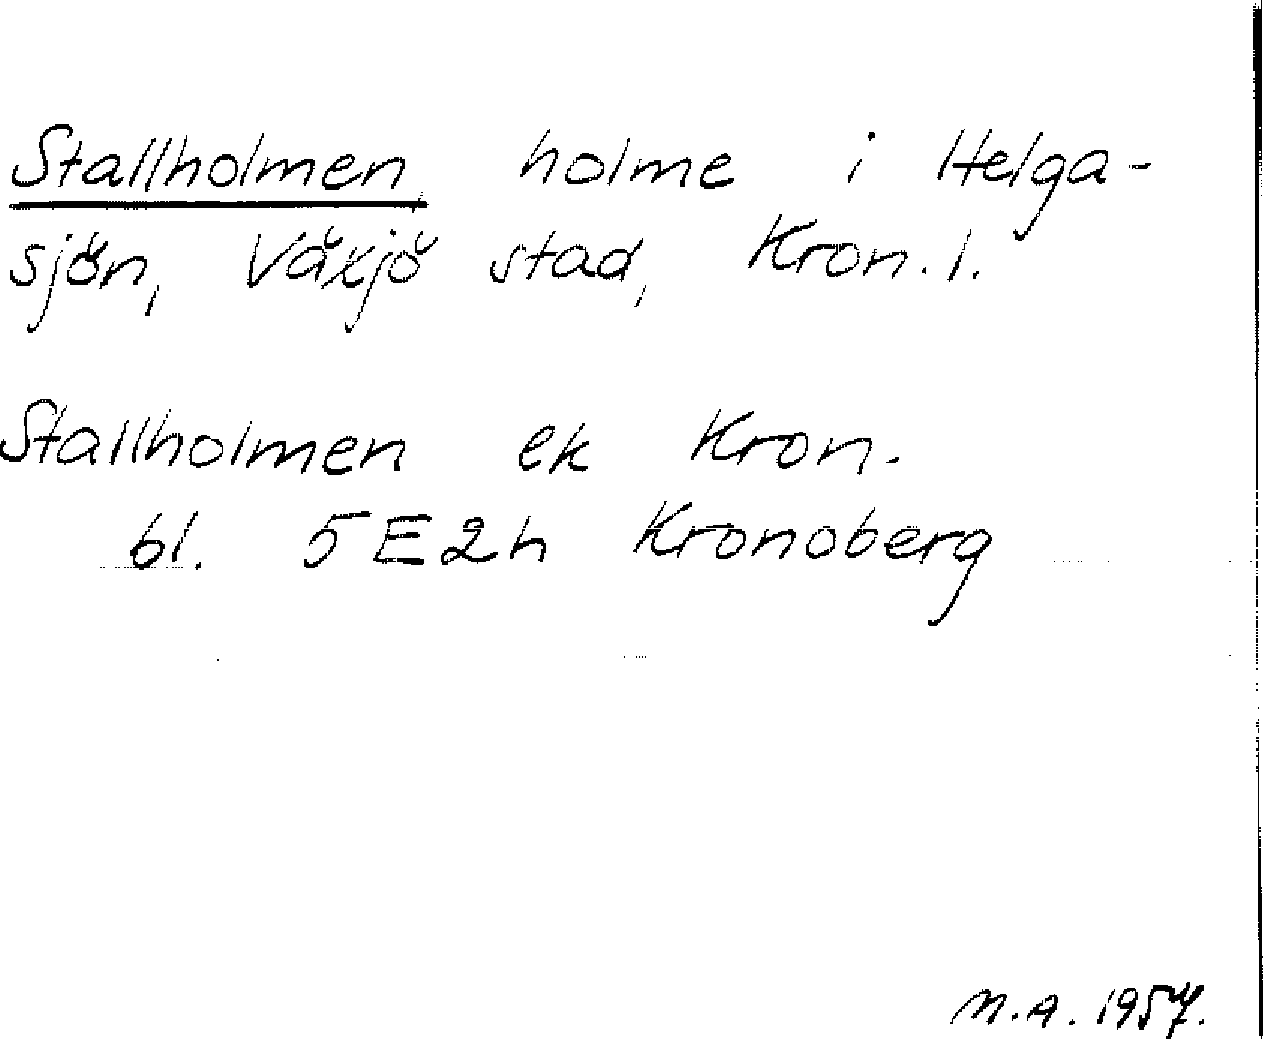 Stallholmen, holme i Helga-
sjön, Växjö stad, Kron. l.
Stallholmen ek Kron.
bl. 5E2h Kronoberg
M.A. 1957.